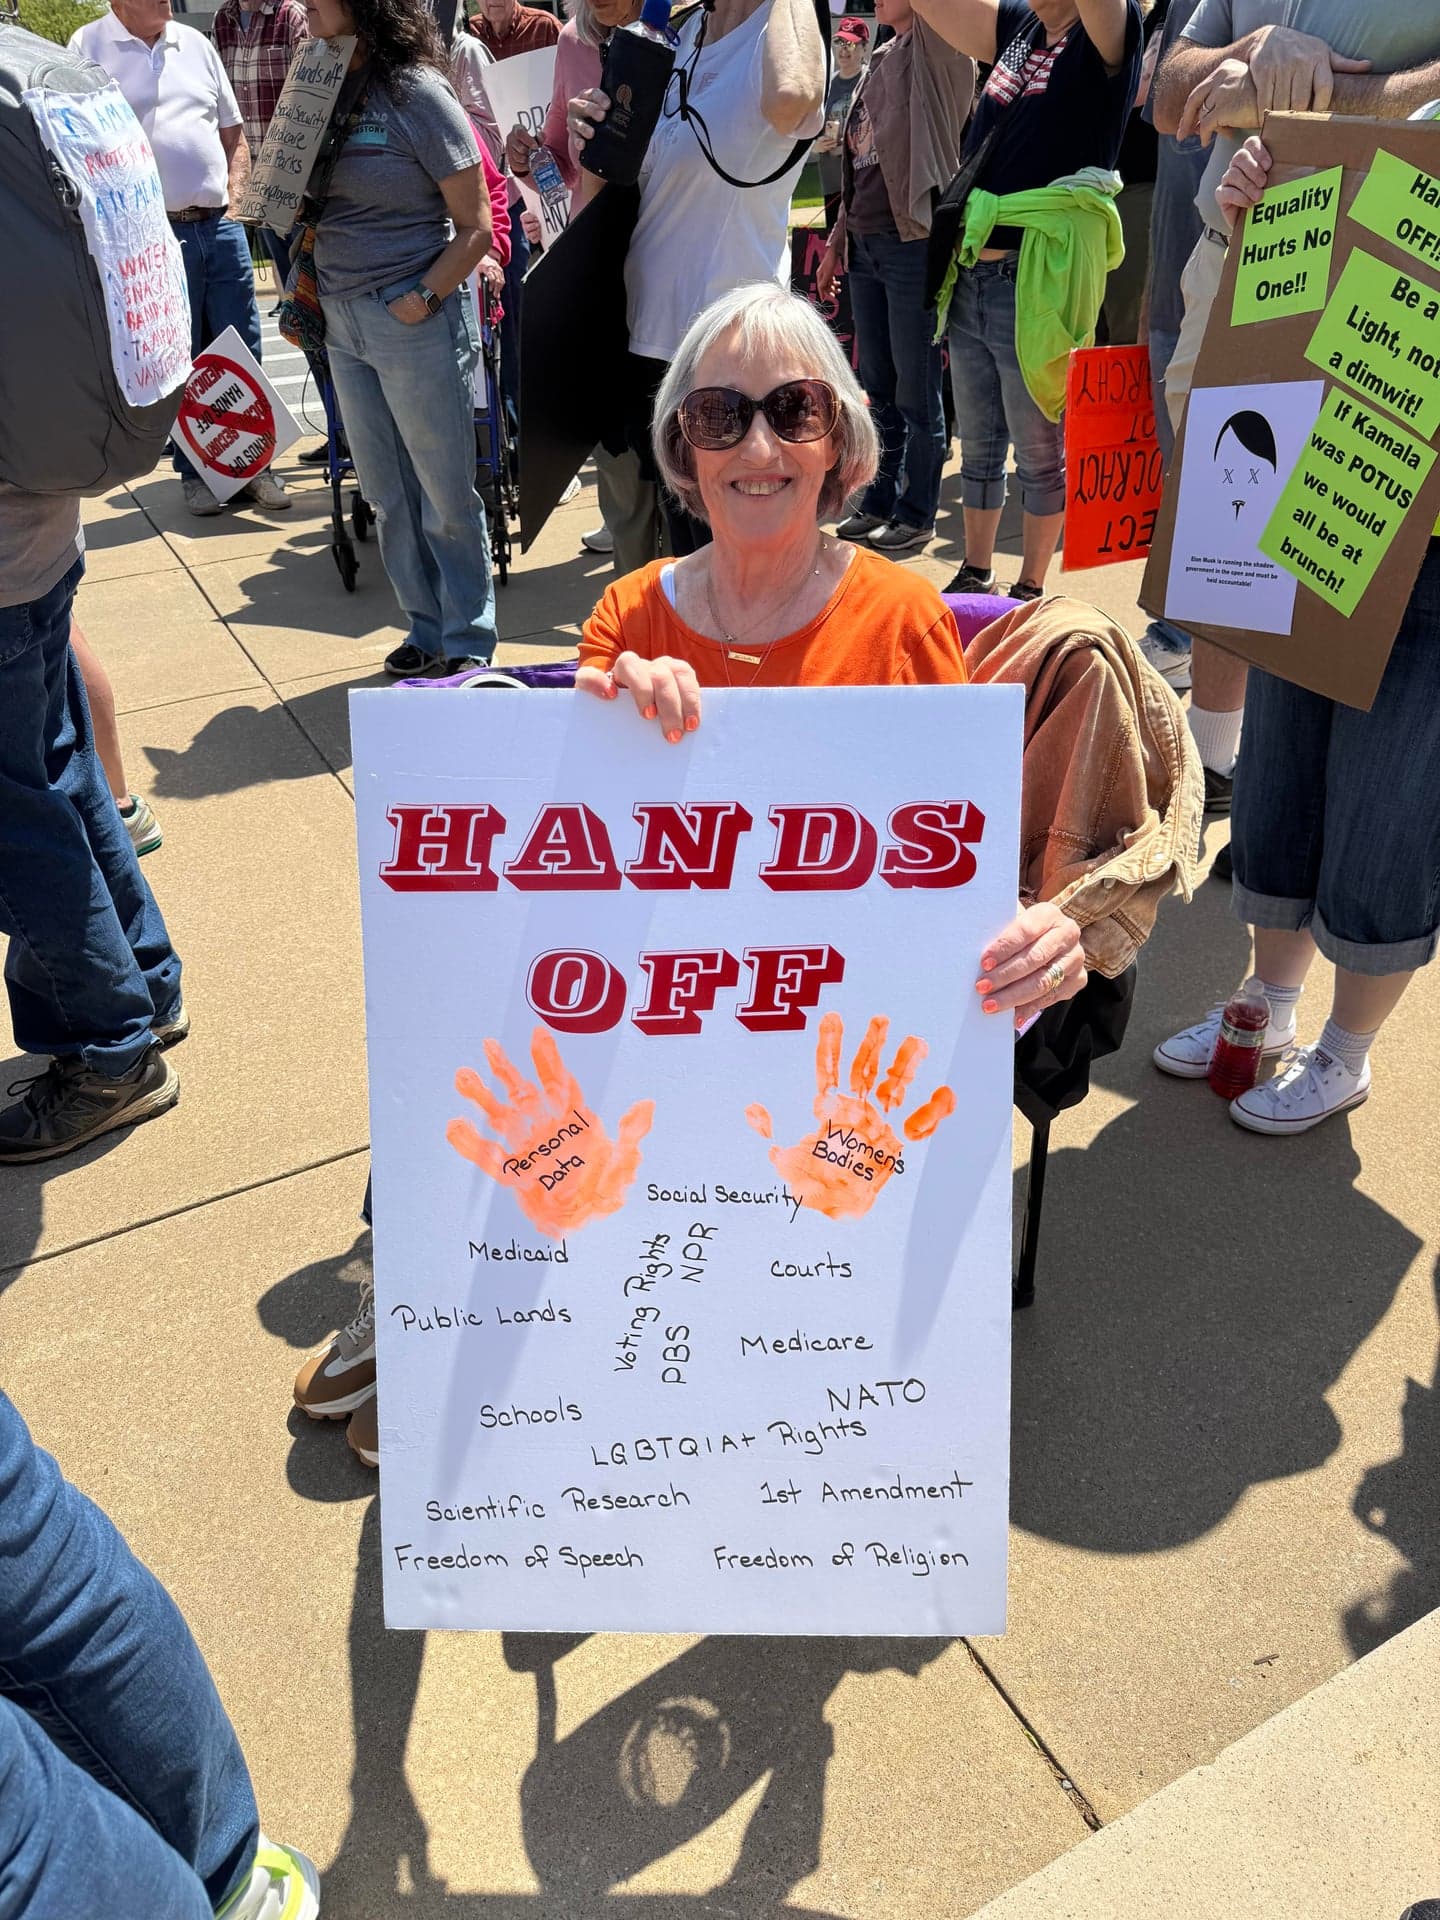 I AM
HANDS OFF
Social Security
Medicare
Nat'l Parks
USPS
WATER
SNACKS
BAND
TAMPONS
MEDICARE
HANDS OFF
HANDS OFF
Equality
Hurts No
One!!
OFF!!
Be a
Light, not
a dimwit!
If Kamala
was POTUS
we would
all be at
brunch!
X X
Elon Musk is running the shadow
government in the open and must be
held accountable!
HANDS
OFF
Personal
Data
Women's
Bodies
Social Security
Medicaid
Voting Rights
NPR
Courts
Public Lands
PBS
Medicare
Schools
NATO
LGBTQIA+ Rights
Scientific Research
1st Amendment
Freedom of Speech
Freedom of Religion